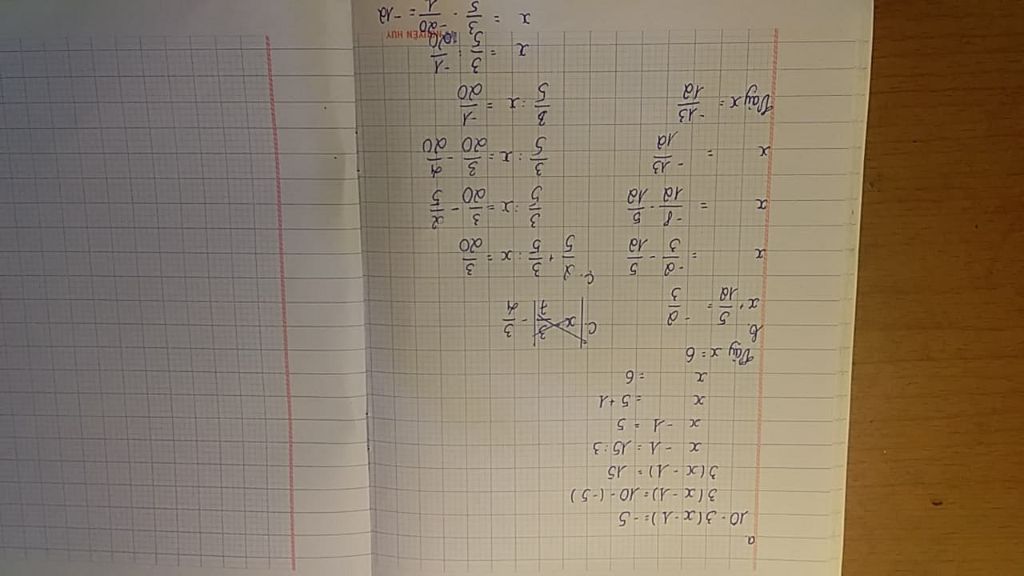 a
10 - 3(x - 1) = -5
3(x - 1) = 10 - (-5)
3(x - 1) = 15
x - 1 = 15 : 3
x - 1 = 5
x = 5 + 1
x = 6
Vậy x = 6
b
x + 5/12 = -2/3
x = -2/3 - 5/12
x = -8/12 - 5/12
x = -13/12
Vậy x = -13/12
c
c
2/5 + 3/5 : x = 3/20
3/5 : x = 3/20 - 2/5
3/5 : x = 3/20 -
3/5 : x = -1/20
x = 3/5 : -1/20
x = 3/5 . -20/1 = -12
NGUYEN HUY